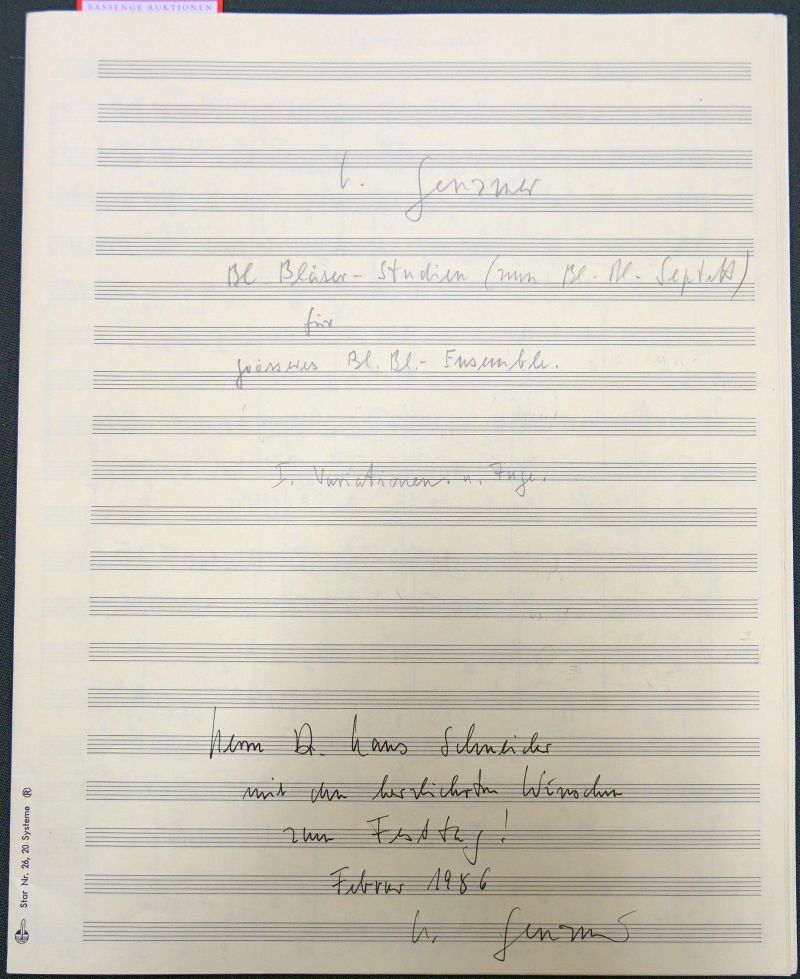 BASSENGE AUKTIONEN
h. Genzmer
Bl. Bläser-Studien (zum Bl. Bl. Septett)
für
grösseres Bl. Bl.- Ensemble.
I. Variationen. u. Fuge.
Herrn Dr. Hans Schneider
mit den herzlichsten Wünschen
zum Festtag!
Februar 1986
h. Genzmer
Star Nr. 26, 20 Systeme ®